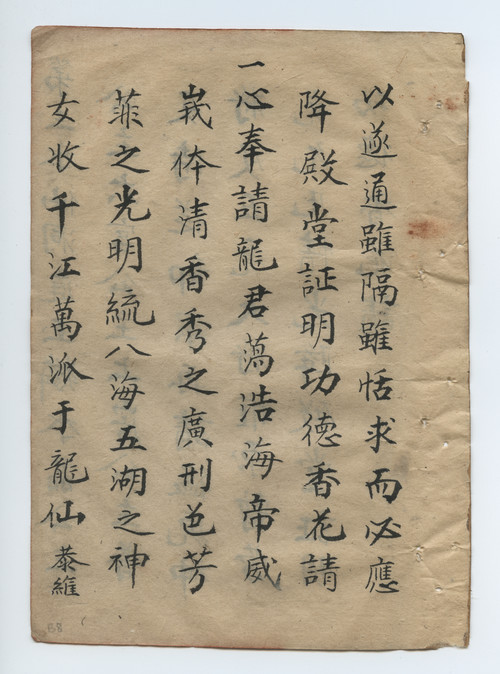 以遂通雖隔雖恬求而必應
降殿堂証明功德香花請
一心奉請龍君蕩浩海帝威
峩体清香秀之廣刑邑芳
菲之光明統八海五湖之神
女收千江萬派于龍仙恭維
B8